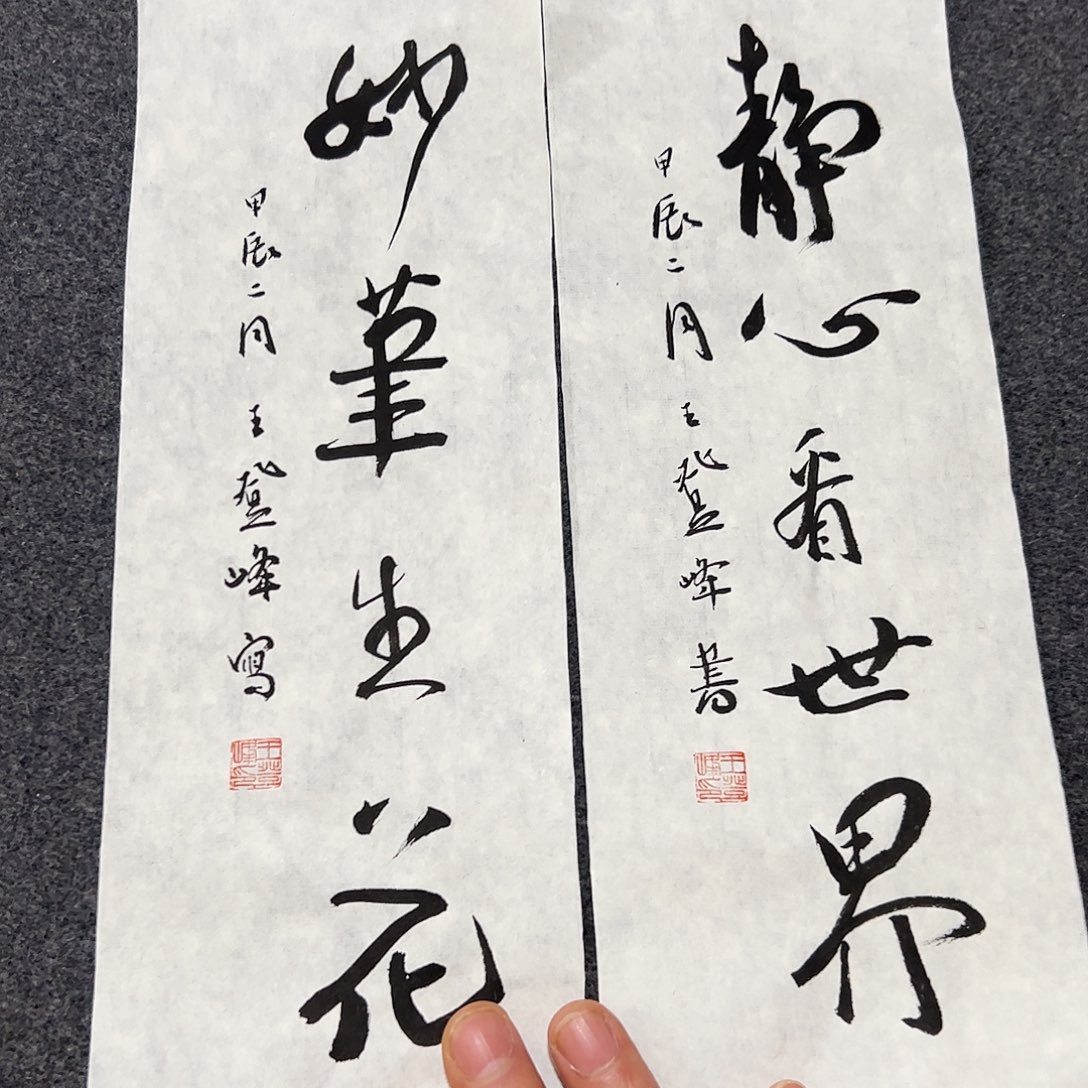 静心看世界
甲辰二月 王登峰書
妙筆生花
甲辰二月 王登峰寫